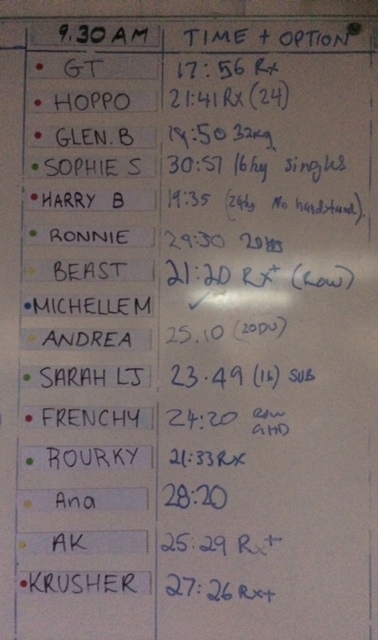 9.30AM TIME + OPTION
GT 17:56 Rx
HOPPO 21:41 RX (24)
GLEN.B 19:50 32kg
SOPHIE S 30:57 16kg singles
HARRY B 19:35 (24kg No handstand)
RONNIE 29:30
BEAST 21:20 Rx+ (Row)
MICHELLE M ✓
ANDREA 25.10 (20DU)
SARAH LJ 23.49 (16) SUB
FRENCHY 24:20 row
GHD
ROURKY 21:33 RX
Ana 28:20
AK 25:29 Rx+
KRUSHER 27:26 Rx+